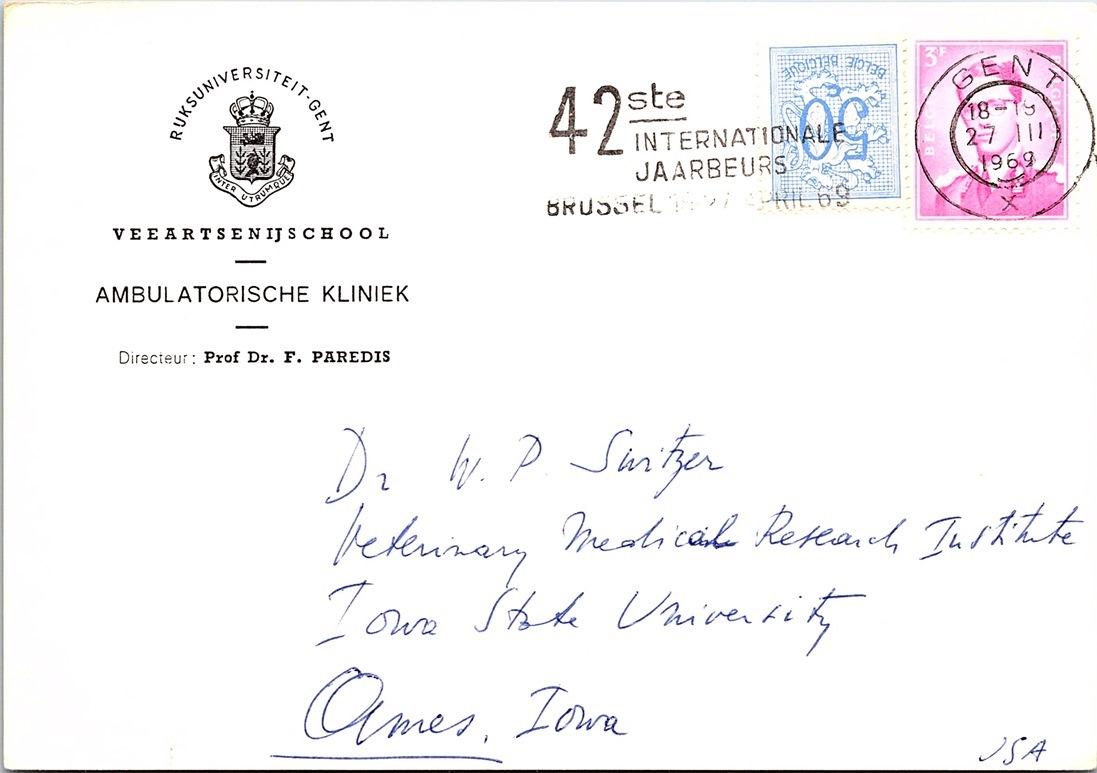 RIJKSUNIVERSITEIT-GENT
INTER UTRUMQUE
VEEARTSENIJSCHOOL
AMBULATORISCHE KLINIEK
Directeur: Prof Dr. F. PAREDIS
42ste
INTERNATIONALE
JAARBEURS
BRUSSEL 27 APRIL 69
BELGIE BELGIQUE
50
3F
GENT
18-19
27 III
1969
X
Dr W. P. Switzer
Veterinary Medical Research Institute
Iowa State University
Ames, Iowa
USA